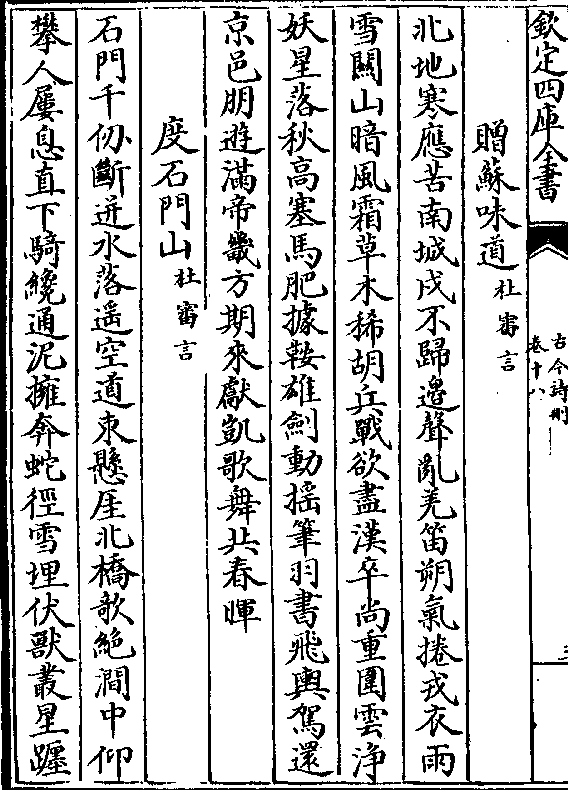 欽定四庫全書
古今詩刪
卷十八
三
贈蘇味道 杜審言
北地寒應苦南城戍不歸邊聲亂羌笛朔氣捲戎衣雨
雪闗山暗風霜草木稀胡兵戰欲盡漢卒尚重圍雲淨
妖星落秋高塞馬肥據鞍雄劍動揺筆羽書飛輿駕還
京邑朋遊滿帝畿方期來獻凱歌舞共春暉
度石門山 杜審言
石門千仞斷迸水落遥空道束懸厓北橋欹絶澗中仰
攀人屢息直下騎纔通泥擁奔蛇徑雪埋伏獸叢星躔